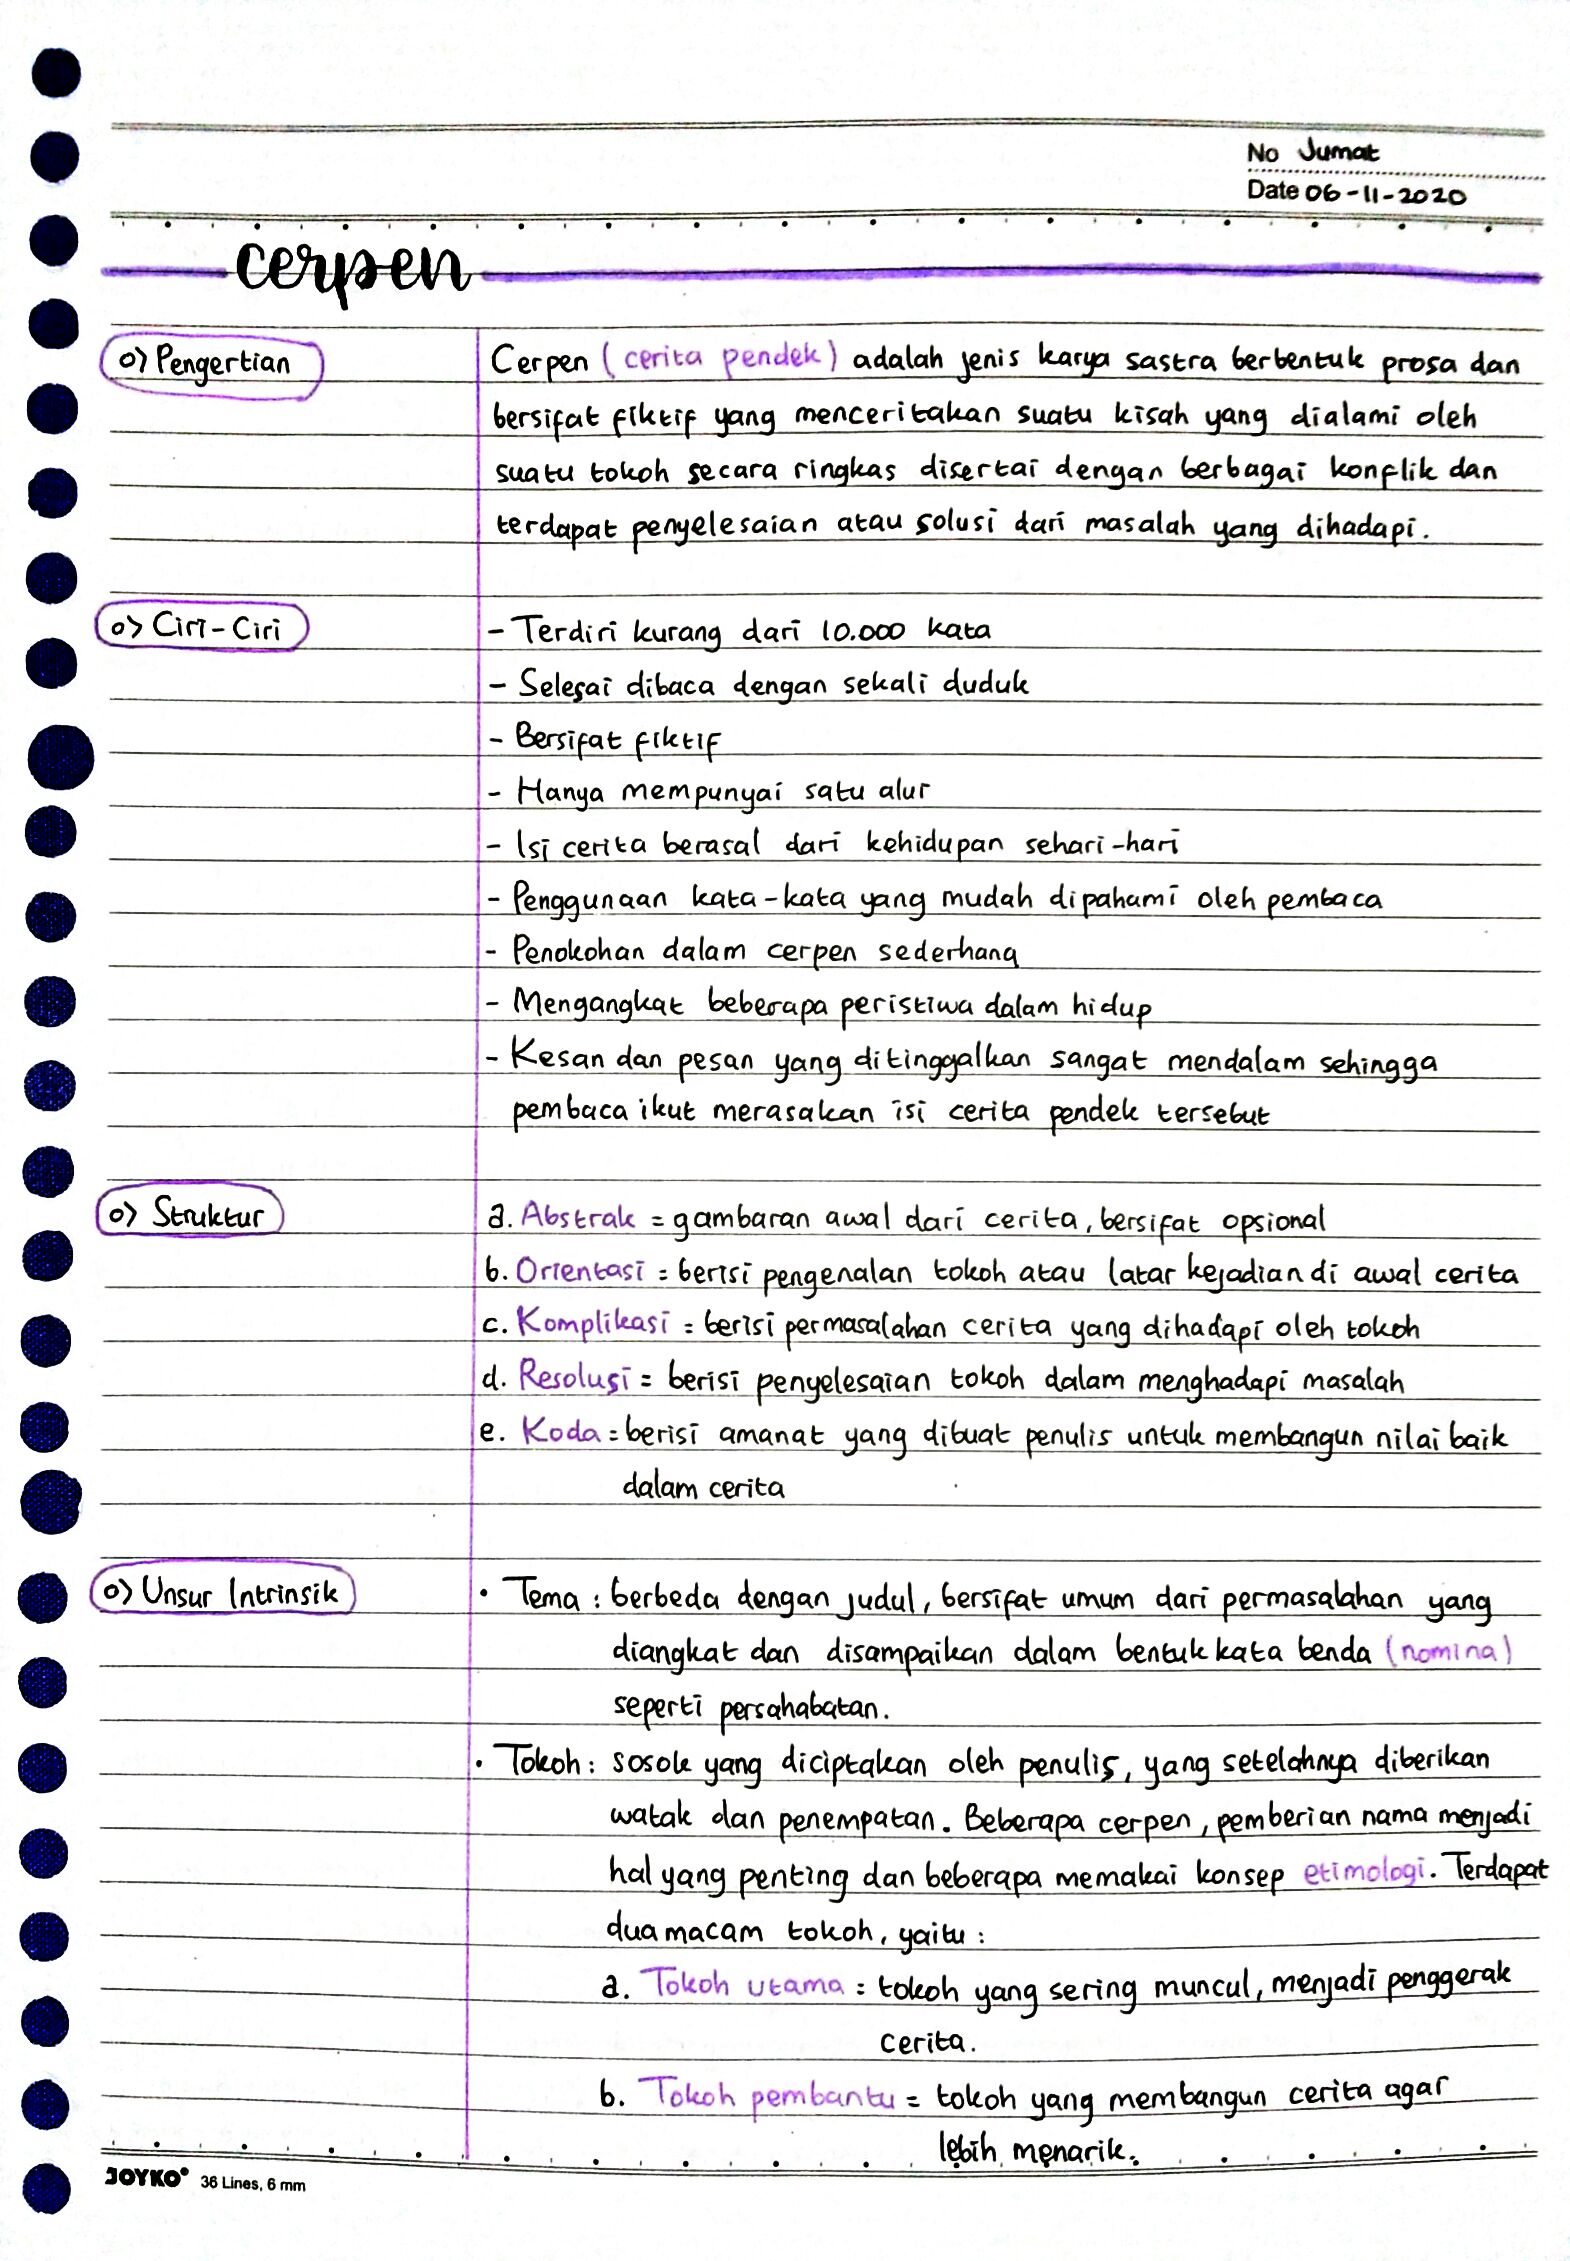 No Jumat
Date 06-11-2020
cerpen
o> Pengertian
Cerpen (cerita pendek) adalah jenis karya sastra berbentuk prosa dan
bersifat fiktif yang menceritakan suatu kisah yang dialami oleh
suatu tokoh secara ringkas disertai dengan berbagai konflik dan
terdapat penyelesaian atau solusi dari masalah yang dihadapi.
o> Ciri-Ciri
- Terdiri kurang dari 10.000 kata
- Selesai dibaca dengan sekali duduk
- Bersifat fiktif
- Hanya mempunyai satu alur
- Isi cerita berasal dari kehidupan sehari-hari
- Penggunaan kata-kata yang mudah dipahami oleh pembaca
- Penokohan dalam cerpen sederhana
- Mengangkat beberapa peristiwa dalam hidup
- Kesan dan pesan yang ditinggalkan sangat mendalam sehingga
pembaca ikut merasakan isi cerita pendek tersebut
o> Struktur
a. Abstrak = gambaran awal dari cerita, bersifat opsional
b. Orientasi = berisi pengenalan tokoh atau latar kejadian di awal cerita
c. Komplikasi = berisi permasalahan cerita yang dihadapi oleh tokoh
d. Resolusi = berisi penyelesaian tokoh dalam menghadapi masalah
e. Koda = berisi amanat yang dibuat penulis untuk membangun nilai baik
dalam cerita
o> Unsur Intrinsik
• Tema : berbeda dengan judul, bersifat umum dari permasalahan yang
diangkat dan disampaikan dalam bentuk kata benda (nomina)
seperti persahabatan.
• Tokoh : sosok yang diciptakan oleh penulis, yang setelahnya diberikan
watak dan penempatan. Beberapa cerpen, pemberian nama menjadi
hal yang penting dan beberapa memakai konsep etimologi. Terdapat
dua macam tokoh, yaitu :
a. Tokoh utama = tokoh yang sering muncul, menjadi penggerak
cerita.
b. Tokoh pembantu = tokoh yang membangun cerita agar
lebih menarik.
JOYKO® 36 Lines, 6 mm